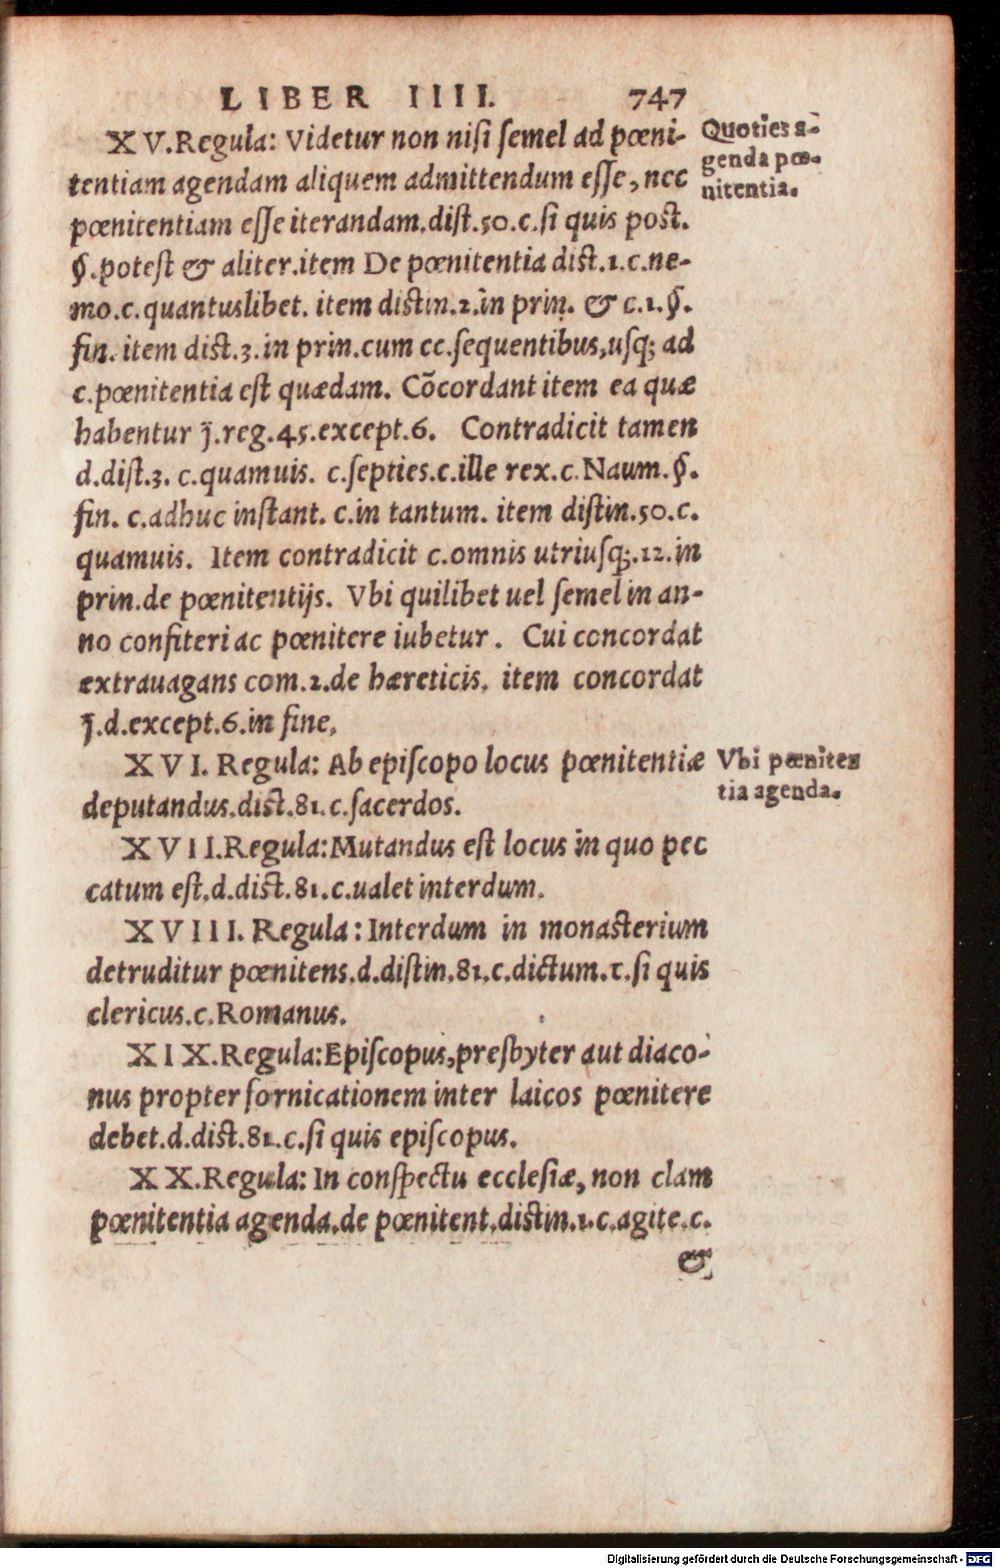 LIBER IIII. 747
XV. Regula: Videtur non nisi semel ad pœni-
tentiam agendam aliquem admittendum esse, nec
pœnitentiam esse iterandam.dist.50.c.si quis post.
§.potest & aliter.item De pœnitentia dist.1.c.ne-
mo.c.quantuslibet. item distin.2.in prin. & c.1.§.
fin. item dist.3.in prin.cum cc.sequentibus,usq; ad
c.pœnitentia est quædam. Cõcordant item ea quæ
habentur j̃.reg.45.except.6. Contradicit tamen
d.dist.3. c.quamuis. c.septies.c.ille rex.c.Naum.§.
fin. c.adhuc instant. c.in tantum. item distin.50.c.
quamuis. Item contradicit c.omnis utriusq;.12.in
prin.de pœnitentijs. Vbi quilibet uel semel in an-
no confiteri ac pœnitere iubetur. Cui concordat
extrauagans com.2.de hæreticis. item concordat
j̃.d.except.6.in fine,
Quoties a-
genda pœ-
nitentia.
XVI. Regula: Ab episcopo locus pœnitentiæ
deputandus.dist.81.c.sacerdos.
Vbi pœniten
tia agenda.
XVII.Regula:Mutandus est locus in quo pec
catum est.d.dist.81.c.ualet interdum.
XVIII. Regula: Interdum in monasterium
detruditur pœnitens.d.distin.81.c.dictum.τ.si quis
clericus.c.Romanus.
XIX.Regula:Episcopus,presbyter aut diaco-
nus propter fornicationem inter laicos pœnitere
debet.d.dist.81.c.si quis episcopus.
XX.Regula: In conspectu ecclesiæ, non clam
pœnitentia agenda.de pœnitent.distin.1.c.agite.c.
&
Digitalisierung gefördert durch die Deutsche Forschungsgemeinschaft - DFG